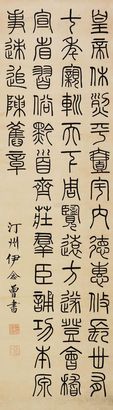 皇帝休烈平壹宇內德惠攸長卅有
七年親巡天下周覽遠方遂登會稽
宣省習俗黔首齊莊羣臣誦功本原
事速追陳舊章
汀州伊念曾書